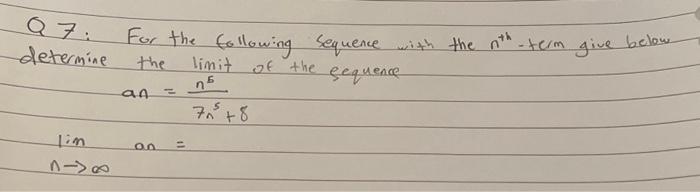 Q 7: For the following sequence with the nth-term give below
determine the limit of the sequence
an = n^5 / 7n^5 + 8
lim n->∞ an =